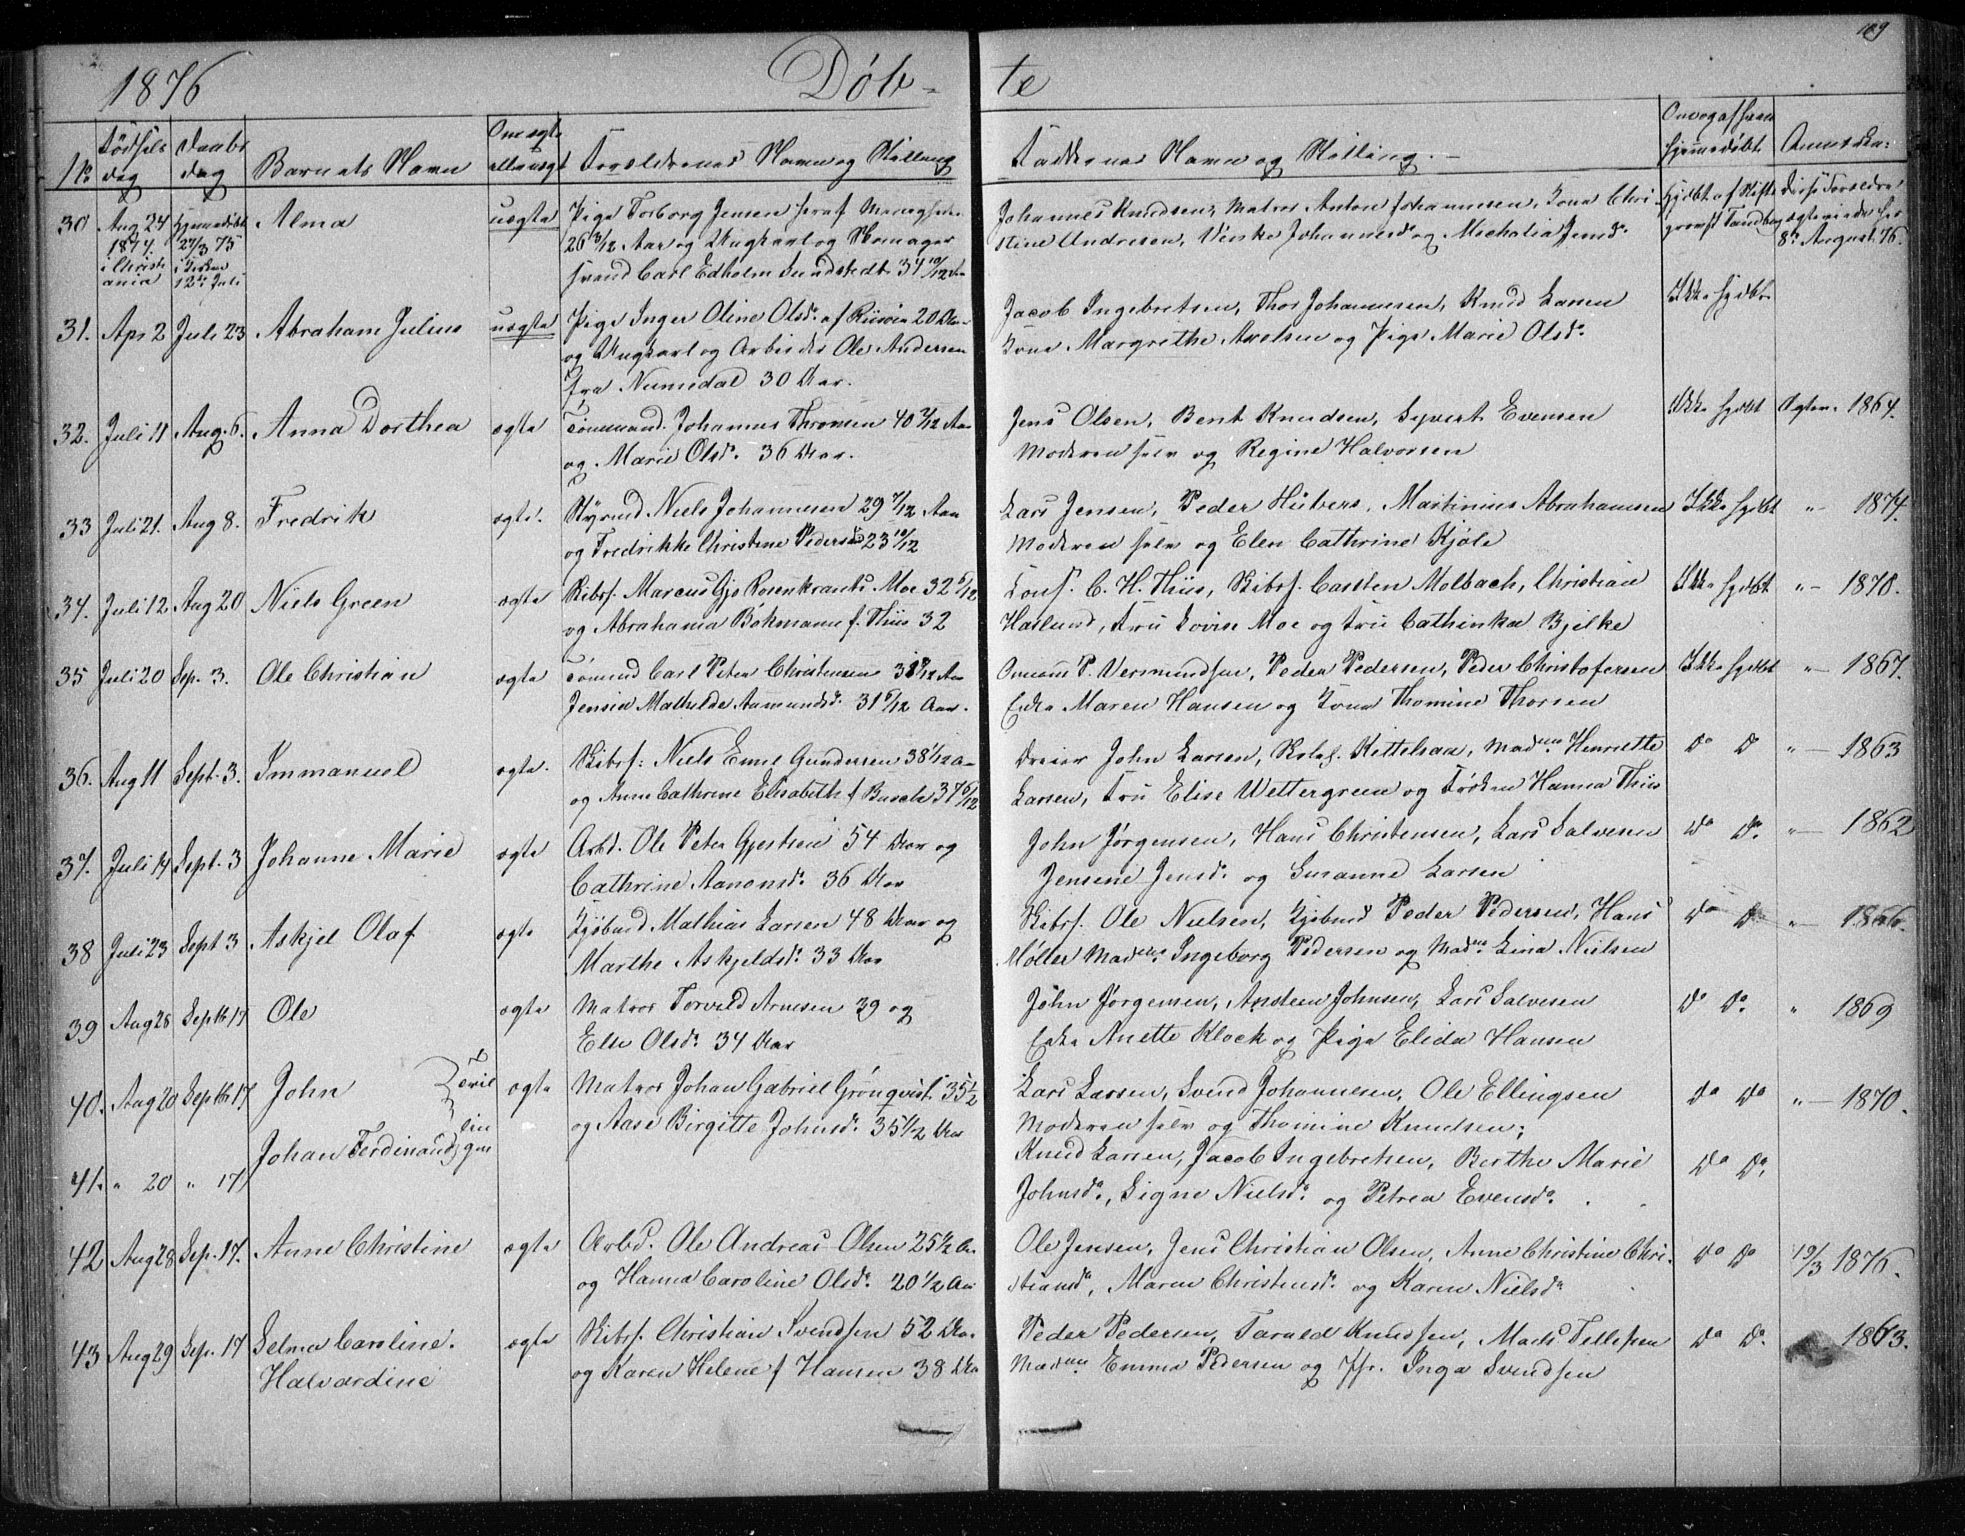 109
1876 Døb- te
No Fødsels dag Daabs dag Barnets Navn Om ægte eller uægte Forældrenes Navn og Stilling Faddernes Navn og Stilling. Om og af hvem hjemmedøbt Anmærkn:
30 Aug 24 1874 i Christiania Hjemmedøbt 27/3 75 i Kirken 12te Juli Alma uægte Pige Torborg Jensen
26 3/12 Aar og Ungkarl og
Carl Edholm Sundstedt 34 10/12 Aar
Johannes Knudsen, Matros Anton Johannesen, Kone Christine Andresen, Johannesd og Michalia Jensd.
Hjdbt af
Disse Forældre ægteviede her 8de August 76.
31. Apr 2 Juli 23 Abraham Julius uægte Pige Inger Oline Olsd. af Riisøen 20 Aar
og Ungkarl og Arbeider Ole Andersen
fra Numedal 30 Aar.
Jacob Ingebretsen, Thor Johannesen, Knud Larsen
Kone Margrethe Axelsen og Pige Marie Olsd.
Ikke hjdbt
32. Juli 11 Aug. 6. Anna Dorthea ægte Tømmermd. Johannes Thronsen 40 7/12 Aar
og Marie Olsd. 36 Aar.
Jens Olsen, Bent Knudsen, Syvert Evensen
Moderen selv og Regine Halvorsen
Ikke hjdbt Ægtev. 1864.
33 Juli 21. Aug 8. Fredrik ægte. Styrmd Niels Johannesen 29 7/12 Aar
og Fredrikke Christine Pedersd 23 10/12
Lars Jensen, Peder Hüberz, Martinius Abrahamsen
Moderen selv og Elen Cathrine Kjøle
Ikke hjdbt " - 1874.
34. Juli 12 Aug 20 Niels Green ægte Skibsf. Marcus Gjø Rosenkrantz Moe 32 5/12
og Abrahama Bøhmann f. Thiis 32
Cons. C. H. Thiis, Skibsf. Carsten Molbach, Christian
Haslund, Fru Lovise Moe og Fru Cathinka Bjelke
Ikke hjdbt " - 1870.
35 Juli 20 Sep. 3. Ole Christian ægte Tømmd Carl Peter Christensen Aar
Jensine Mathilde Aamundsd. 31 6/12 Aar.
P. Vermundsen, Peder Pedersen, Peder Christofersen
Enke Maren Hansen og Kone Thomine Thorsen
Ikke hjdbt " - 1867.
36. Aug 11 Sept. 3. Immanuel ægte. Skibsf: Niels Emil Gundersen 38 1/12 Aar
og Anne Cathrine Elisabeth f Busch 37 6/12
Dreier John Larsen, Kittelsen, Madme Henriette
Larsen, Fru Elise Wettergreen og Frøken Hanna Thiis
Do Do " - 1863
37. Juli 14 Sept. 3 Johanne Marie ægte Arbd. Ole Peter Gjertsen 54 Aar og
Cathrine Aanonsd. 36 Aar
John Jørgensen, Hans Christensen, Lars Salvesen
Jensine Jensd. og Susanne Larsen
Do Do. " - 1862
38 Juli 23 Sept 3 Askjel Olaf ægte Mathias Larsen 48 Aar og
Marthe Askjeldsd. 33 Aar
Skibsf. Ole Nielsen, Peder Pedersen, Hans
Møller Madme. Ingeborg Pedersen og Madme. Lina Nielsen
Do Do " - 1866.
39 Aug 28 Septb. 17 Ole ægte Matros Torvald Arnesen 39 og
Else Olsd. 34 Aar
John Jørgensen, Ansteen Johnsen, Lars Salvesen
Enke Anette Klock og Pige Elida Hansen
Do Do. " 1869
40. Aug 20 Septb. 17 John Tvillinger ægte Matros Johan Gabriel Grönqvist 35 1/2
og Aase Birgitte Johnsd. 35 1/2 Aar
Lars Larsen, Svend Johannesen, Ole Ellingsen
Moderen selv og Thomine Knudsen;
Do Do " - 1870.
41. " 20 " 17 Johan Ferdinand
Knud Larsen, Jacob Ingebretsen, Berthe Marie
Johnsd., Signe Nielsd. og Petrea Evensd.
Do Do.
42 Aug 28 Sep. 17. Anne Christine ægte Arbd. Ole Andreas Olsen 25 1/2 Aar
og Hanna Caroline Olsd. 20 1/2 Aar
Ole Jensen, Jens Christian Olsen, Anne Christine Christiansd., Maren Christensd. og Karen Nielsd.
Do Do 19/3 1876.
43 Aug 29 Sep. 17 Selma Caroline.
Halvardine
ægte Skibsf. Christian Svendsen 52 Aar
og Karen Helene f Hansen 38 Aar
Peder Pedersen, Tarald Knudsen, Mads Tellefsen
Madme Emma Pedersen og Jfr. Inga Svendsen
Do Do. 1863.